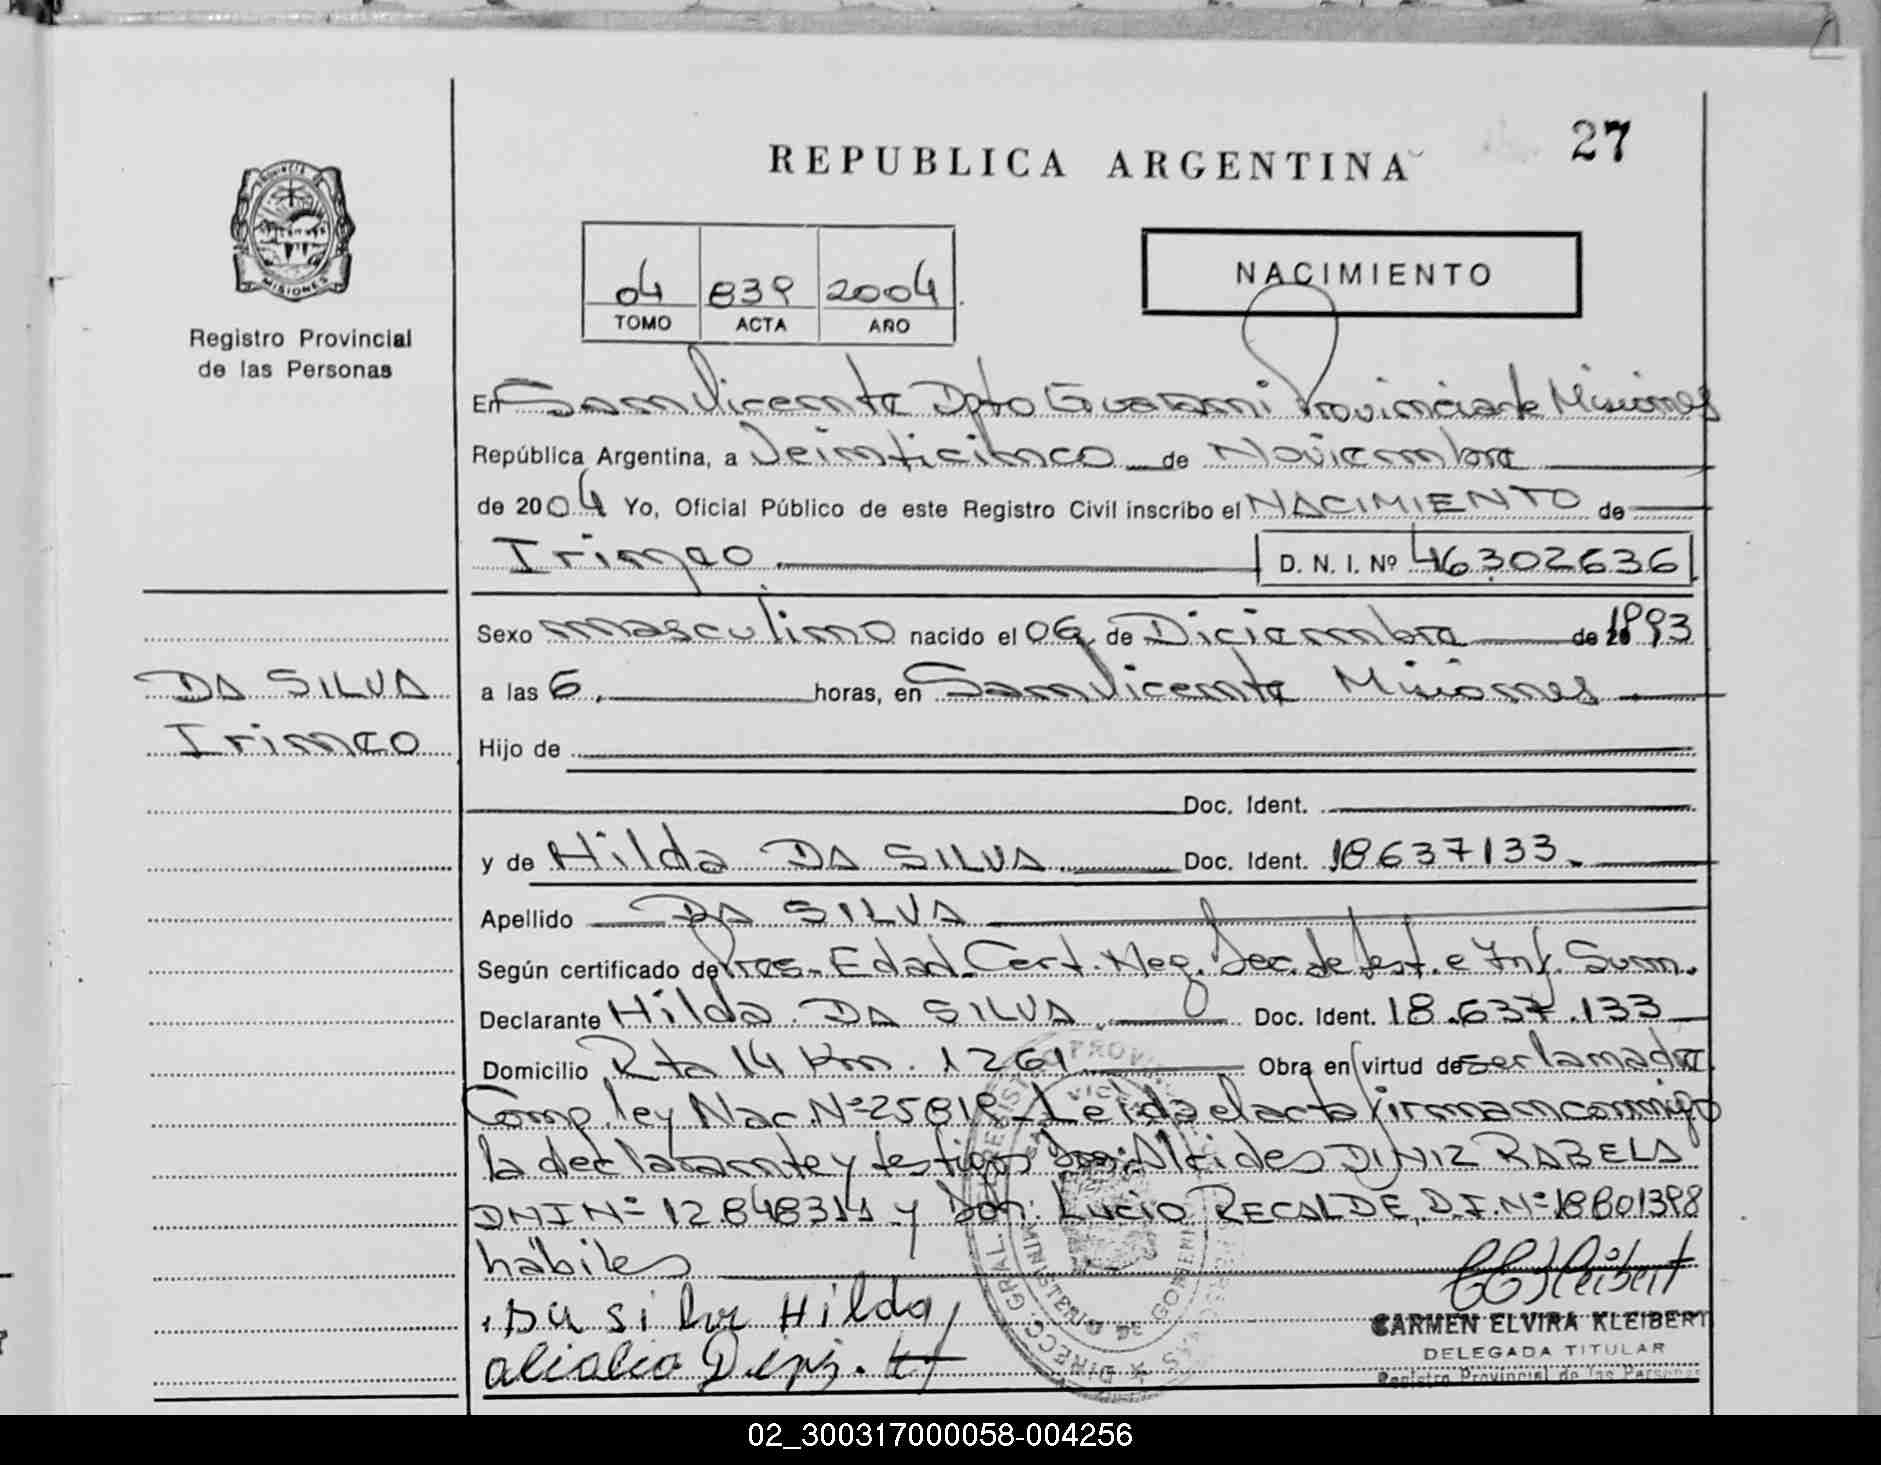 27
REPUBLICA ARGENTINA
PROVINCIA DE
MISIONES
Registro Provincial
de las Personas
04 839 2004
TOMO ACTA AÑO
NACIMIENTO
En San Vicente Dpto Guarani Provincia de Misiones
República Argentina, a Veinticinco de Noviembre
de 2004 Yo, Oficial Público de este Registro Civil inscribo el NACIMIENTO de
Irineo D. N. I. Nº 46.302636
Sexo masculino nacido el 06 de Diciembre de 1993
DA SILVA
Irineo
a las 6, horas, en San Vicente Misiones
Hijo de
Doc. Ident.
y de Hilda DA SILVA Doc. Ident. 18637133.
Apellido DA SILVA
Según certificado de Pres. Edad. Cert. Neg. Dec. de Test. e Inf. Sum.
Declarante Hilda DA SILVA Doc. Ident. 18.637.133
Domicilio Rta 14 Km. 1261 Obra en virtud de ser la madre
Comp. ley Nac. Nº 25819 Leida el acta firman conmigo
la declarante y testigos Don: Alcides DINIZ RABELA
DNI Nº 12.848311 y Don: Lucio RECALDE, D.I. Nº 18801398
hábiles
Da silva Hilda
CARMEN ELVIRA KLEIBERT
DELEGADA TITULAR
Registro Provincial de las Personas
02_300317000058-004256